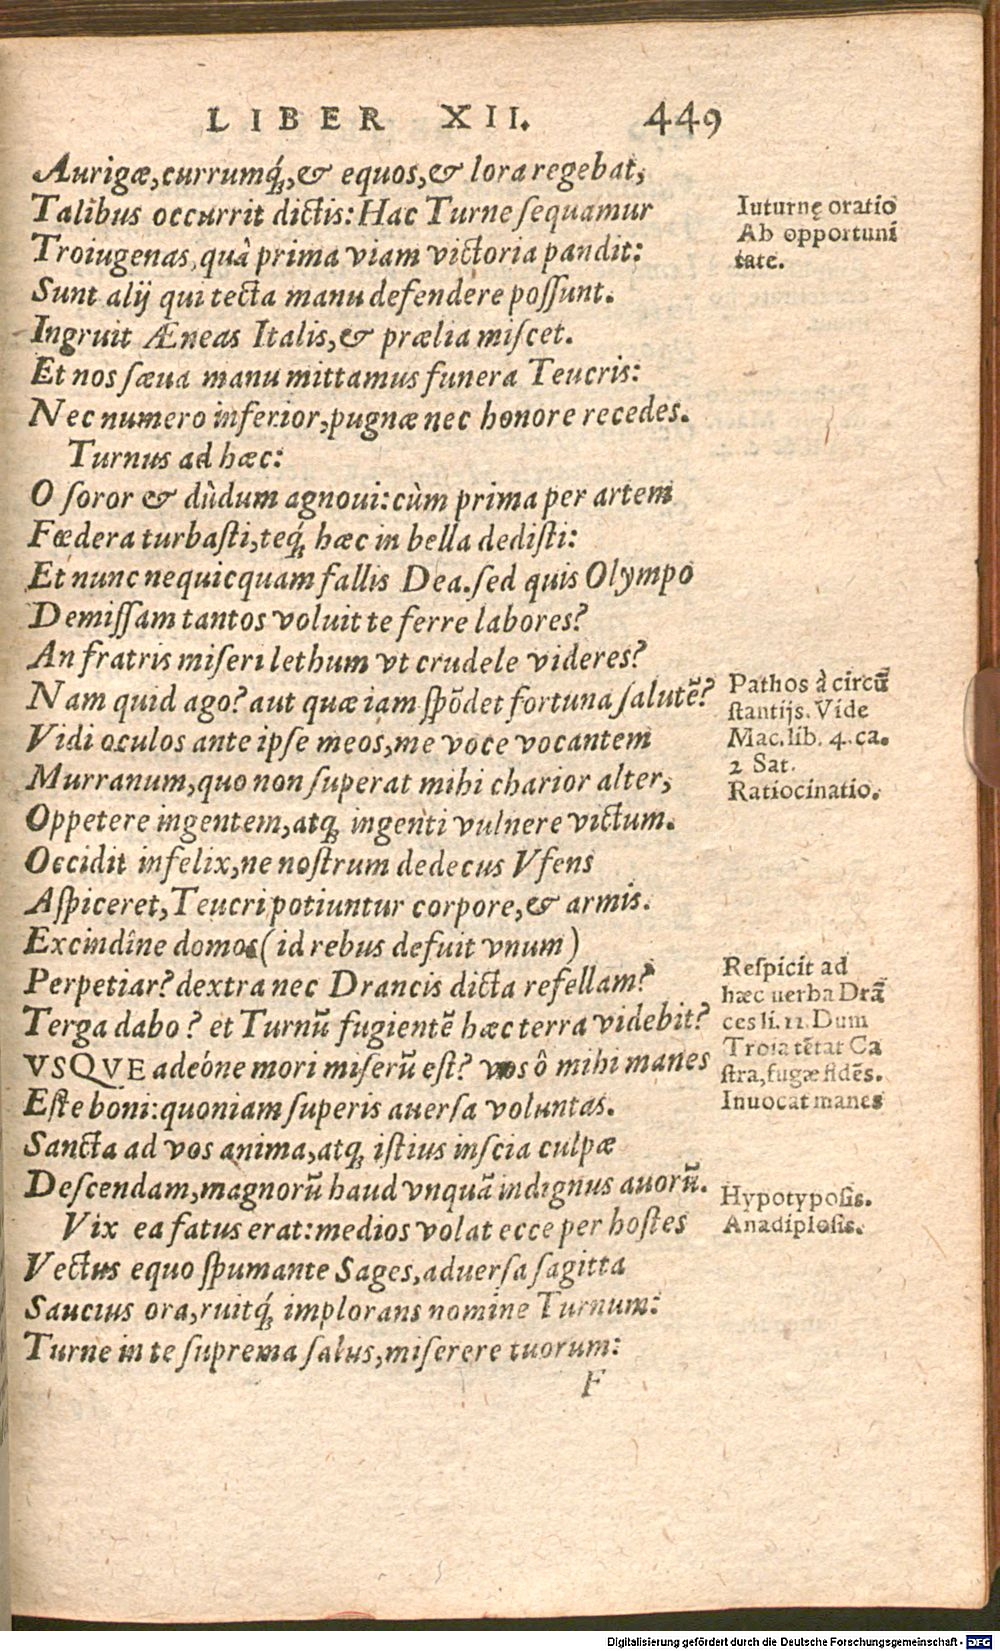 LIBER XII. 449
Aurigæ, currumq́;, & equos, & lora regebat,
Talibus occurrit dictis: Hac Turne sequamur
Troiugenas, quà prima viam victoria pandit:
Sunt alij qui tecta manu defendere possunt.
Ingruit Æneas Italis, & prælia miscet.
Et nos sæua manu mittamus funera Teucris:
Nec numero inferior, pugnæ nec honore recedes.
Turnus ad hæc:
O soror & dùdum agnoui: cùm prima per artem
Fœdera turbasti, teq́; hæc in bella dedisti:
Et nunc nequicquam fallis Dea. sed quis Olympo
Demissam tantos voluit te ferre labores?
An fratris miseri lethum vt crudele videres?
Nam quid ago? aut quæ iam spōdet fortuna salutē?
Vidi oculos ante ipse meos, me voce vocantem
Murranum, quo non superat mihi charior alter,
Oppetere ingentem, atq; ingenti vulnere victum.
Occidit infelix, ne nostrum dedecus Vfens
Aspiceret, Teucri potiuntur corpore, & armis.
Excindîne domos (id rebus defuit vnum)
Perpetiar? dextra nec Drancis dicta refellam?
Terga dabo? et Turnū fugientē hæc terra videbit?
VSQVE adeóne mori miserū est? vos ô mihi manes
Este boni: quoniam superis auersa voluntas.
Sancta ad vos anima, atq; istius inscia culpæ
Descendam, magnorū haud vnquā indignus auorū.
Vix ea fatus erat: medios volat ecce per hostes
Vectus equo spumante Sages, aduersa sagitta
Saucius ora, ruitq́; implorans nomine Turnum:
Turne in te suprema salus, miserere tuorum:
F
Iuturnę oratio
Ab opportuni
tate.
Pathos à circū
stantijs. Vide
Mac. lib. 4. ca.
2 Sat.
Ratiocinatio.
Respicit ad
hæc uerba Drā
ces li. 11. Dum
Troia tētat Ca
stra, fugæ fidēs.
Inuocat manes
Hypotyposis.
Anadiplosis.
Digitalisierung gefördert durch die Deutsche Forschungsgemeinschaft - DFG